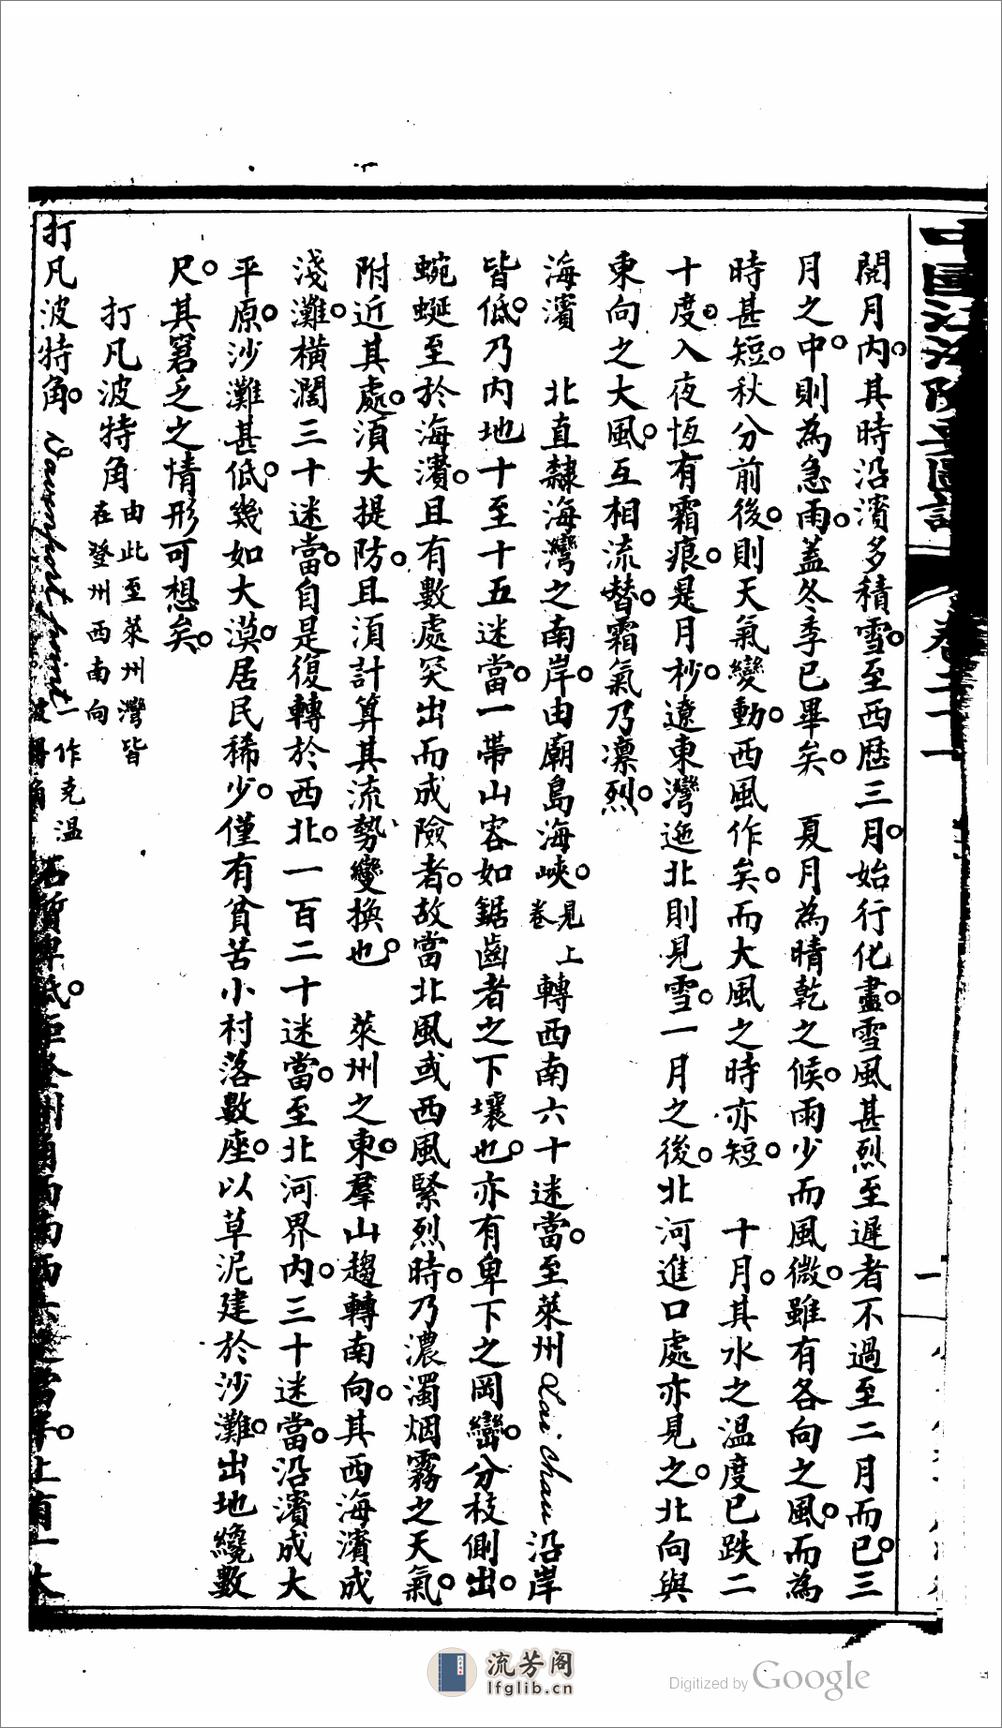 閱月內。其時沿濱多積雪。至西歷三月。始行化盡。雪風甚烈至遲者不過至二月而已。三
月之中。則為急雨。蓋冬季已畢矣。　夏月為晴乾之候。雨少而風微。雖有各向之風。而為
時甚短。秋分前後。則天氣變動。西風作矣。而大風之時亦短。　十月。其水之温度已跌二
十度。入夜恆有霜痕。是月杪。遼東灣迤北則見雪。一月之後。北河進口處亦見之。北向與
東向之大風。互相流替。霜氣乃凛烈。
海濱　北直隸海灣之南岸。由廟島海峽。見上卷轉西南六十迷當。至萊州Lai-chau沿岸
皆低。乃内地十至十五迷當。一帶山容如鋸齒者之下壤也。亦有卑下之岡巒。分枝側出。
蜿蜒至於海濱。且有數處突出而成險者。故當北風或西風緊烈時。乃濃濁烟霧之天氣。
附近其處。須大提防。且須計算其流勢、變換也。　萊州之東。羣山趨轉南向。其西海濱成
淺灘。橫濶三十迷當。自是復轉於西北。一百二十迷當。至北河界内。三十迷當。沿濱成大
平原。沙灘甚低。幾如大漠。居民稀少。僅有貧苦小村落數座。以草泥建於沙灘。出地纔數
尺。其窘乏之情形可想矣。
打凡波特角由此至萊州灣皆在登州西南向
打凡波特角。一作克温